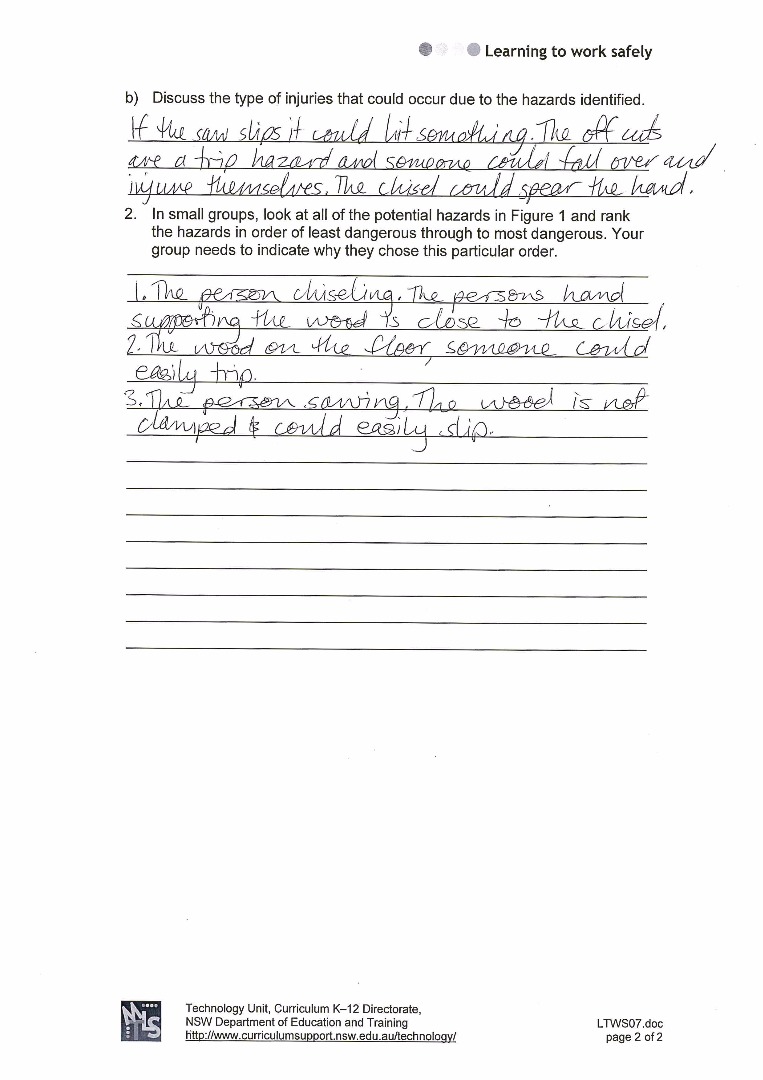 Learning to work safely
b) Discuss the type of injuries that could occur due to the hazards identified.
If the saw slips it could hit something. The off cuts
are a trip hazard and someone could fall over and
injure themselves. The chisel could spear the hand.
2. In small groups, look at all of the potential hazards in Figure 1 and rank
the hazards in order of least dangerous through to most dangerous. Your
group needs to indicate why they chose this particular order.
1. The person chiseling. The persons hand
supporting the wood is close to the chisel.
2. The wood on the floor, someone could
easily trip.
3. The person sawing. The wood is not
clamped & could easily slip.
Technology Unit, Curriculum K–12 Directorate,
NSW Department of Education and Training
http://www.curriculumsupport.nsw.edu.au/technology/
LTWS07.doc
page 2 of 2